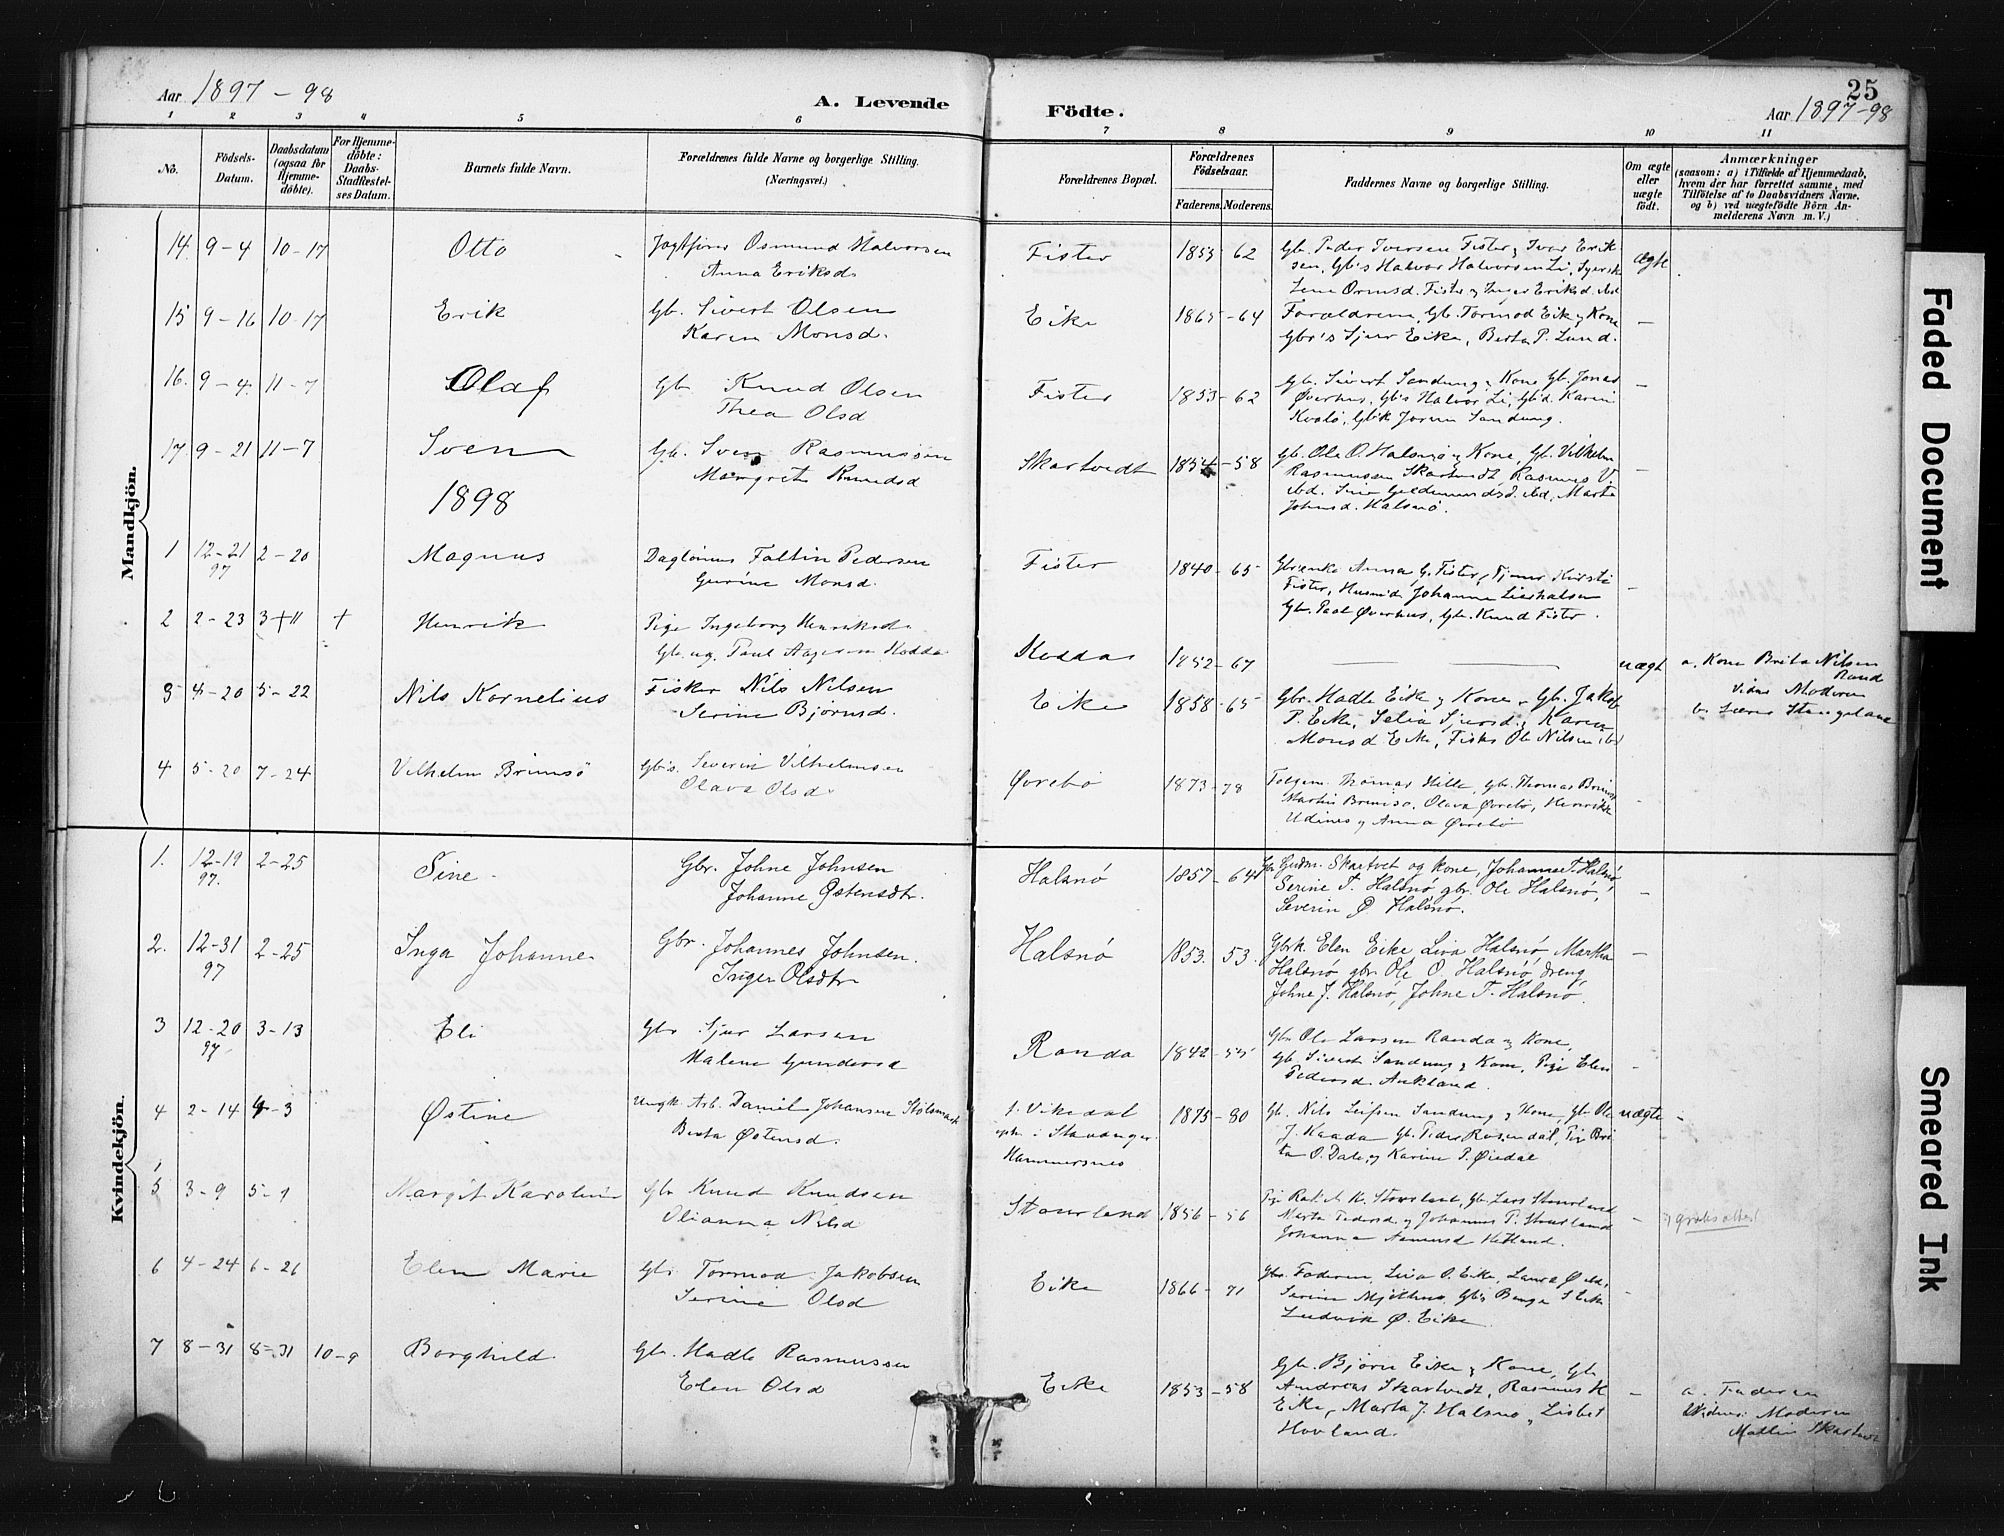 Aar 1897-98
A. Levende Födte.
25
Aar 1897-98
1 2 3 4 5 6 7 8 9 10 11
No.
Födsels-Datum.
Daabsdatum (ogsaa for Hjemme-döbte).
For Hjemme-döbte: Daabs-Stadfæstel-ses Datum.
Barnets fulde Navn.
Forældrenes fulde Navne og borgerlige Stilling.
(Næringsvei.)
Forældrenes Bopæl.
Forældrenes Födselsaar.
Faderens. Moderens.
Faddernes Navne og borgerlige Stilling.
Om ægte eller uægte födt.
Anmærkninger
(saasom: a) i Tilfælde af Hjemmedaab,
hvem der har forrettet samme, med
Tilföielse af to Daabsvidners Navne,
og b) ved uægtefödte Börn An-
melderens Navn m. V.)
Mandkjön.
14 9-4 10-17 Otto Osmund Halvorsen Fister 1855-62 Gb. Peder Iversen Fister, Ivar Erik- ægte
Anna Eriksd. sen, Gb's Halvor Halvorsen Li,
Lene Ormsd. Fister og Inger Eriksd. ibd
15 9-16 10-17 Erik Gb. Sivert Olsen Eike 1865-64 Forældrene, Gb. Tormod Eik og Kone -
Karen Monsd. Gbr's Sjur Eike, Berta P. Lund.
16. 9-4. 11-7 Olaf Gb. Knud Olsen Fister 1853-62 Gb. Sivert Sandung og Kone Gb. Jonas -
Thea Olsd Øverhus, Gb's Halvor Li, Gb'd. Karen
Sandung.
17 9-21 11-7 Sven Gb. Sven Rasmussen Skartvedt 1854-58 Gb. Ole O. Halsnø og Kone, Gb. Vilhelm -
Margrete Knudsd Rasmussen Skartvedt, Rasmus V.
ibd. ibd, Marta
Johnsd. Halsnø.
1898
1 12-21 97 2-20 Magnus Faltin Pedersen Fister 1840-65 Gbrenke Anna G. Fister, -
Gurine Monsd. Fister, Johanne
Gb. Paul Øverhus, Gb. Knud Fister.
2 2-23 3+11 + Henrik Pige Ingeborg Henriksd. Hodda 1852-67 uægt a. Kone Brita Nilsen
Gb. ug. Paul Aagesen Hodda Rand
Vidne Moderen
3 4-20 5-22 Nils Kornelius Fisker Nils Nilsen Eike 1858-65 Gbr. Hadle Eike og Kone, Gb. Jakob b. Lærer Stangeland
Serine Bjørnsd. P. Eike, Selia Sjursd. og Karen
Monsd Eike, Fisker Ole Nilsen ibd
4 5-20 7-24 Vilhelm Brimsø Gb's. Severin Vilhelmsen Øvrebø 1873-78 Thomas Hille, Gb. Thomas Brimsø -
Olava Olsd. Brimsø, Olava Øvrebø, Henrikke
og Anna Øvrebø
Kvindekjön.
1. 12-19 97. 2-25 Sine Gbr. Johne Johnsen Halsnø 1857-64 Gbr Gudm. Skartvet og kone, Johannes T. Halsnø,
Johanne Østensdtr. Serine T. Halsnø gbr. Ole Halsnø, -
Severin Ø Halsnø.
2. 12-31 97 2-25 Inga Johanne Gbr. Johannes Johnsen. Halsnø 1853. 53. Gbrk. Elen Eike, Liva Halsnø, Martha -
Inger Olsdtr Halsnø gbr. Ole O. Halsnø dreng
Johne J. Halsnø, Johne T. Halsnø.
3 12-20 97 3-13 Eli Gbr Sjur Larsen Randa 1842-55 Gbr Ole Larsen Randa og Kone,
Malene Gundersd Gb. Sivert Sandung og Kone, Pige Elen -
Pedersd. Aukland.
4 2-14 4-3 Østine Ungk. Arb. Daniel Johansen Stølsmark f. Vikedal 1875-80 Gb. Nils Leifsen Sandung og Kone, Gb Ole uægte -
Berta Østensd. oph. i Stavanger J. Kaada Gb. Peder Rosendal, Pige Bri-
Hammersnes ta O. Dale, og Karine P. Øiedal
5 3-9 5-1 Margit Karoline Gbr Knud Knudsen Stourland 1856-56 Pige K. Stourland, Gb. Lars Stourland
Olianna Nilsd Marta Pedersd. og Johannes P. Stourland - gratis attest
Johanna Hetland.
6 4-24 6-26 Elen Marie Gbr Tormod Jakobsen Eike 1866-71 Faderen, Liva O. Eike, Laura Ø ibd,
Serine Olsd Serine Mjølhus, Gb's Børge S Eike -
Ludvik Ø. Eike.
7 8-31 8-31 10-9 Borghild Gb. Hadle Rasmussen Eike 1853-58 Gb. Bjørn Eike og Kone, Gb
Elen Olsd Andreas Skartvedt, Rasmus H - a. Faderen
Eike, Marta J. Halsnø, Lisbet Vidner: Moderen
Hovland. Skartvedt
Faded Document
Smeared Ink